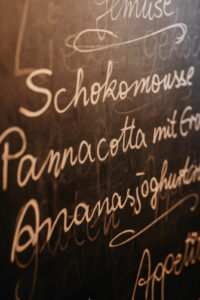 Gemüse
Schokomousse
Pannacotta mit Er
Ananasjoghurt
Appetit